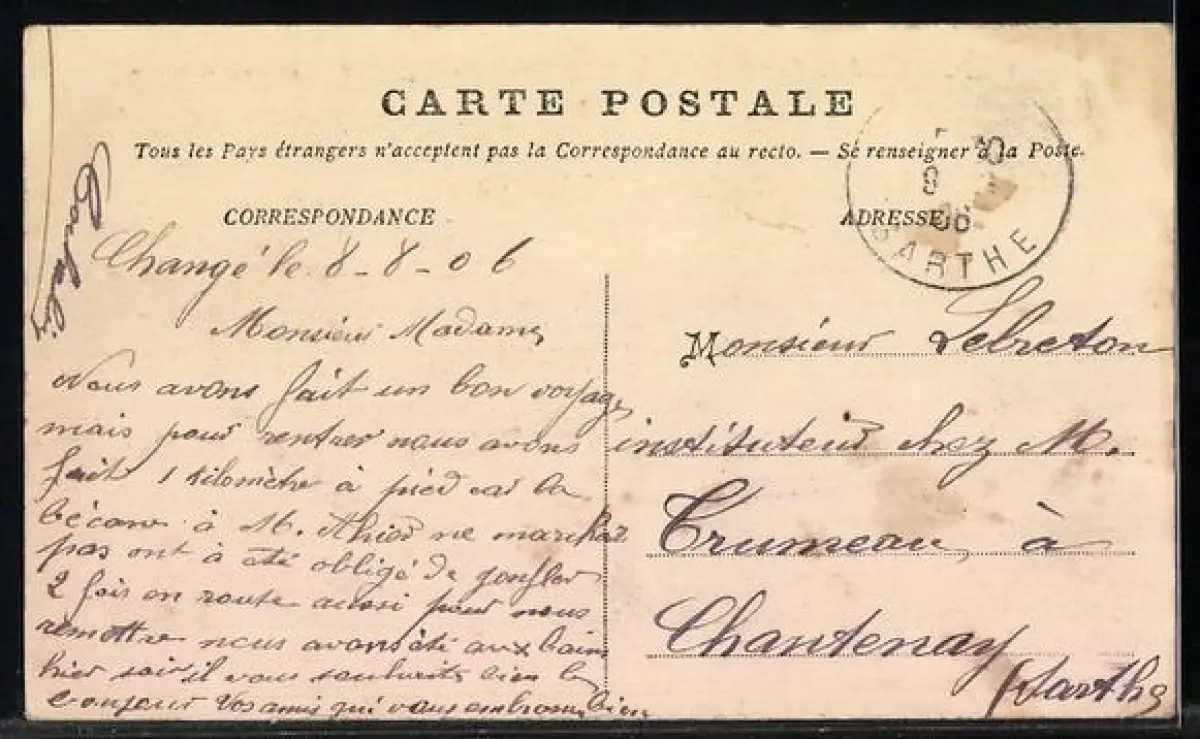 CARTE POSTALE
Tous les Pays étrangers n'acceptent pas la Correspondance au recto. — Se renseigner à la Poste.
CORRESPONDANCE
Changé le 8-8-06
Monsieur Madame
Nous avons fait un bon voyage
mais pour rentrer nous avons
fait 1 kilomètre à pied car la
bécane à M. ne marchait
pas ont à été obligé de gonfler
2 fois en route aussi pour nous
remettre nous avons été aux bain
hier soir il vous souhaite bien le
bonjour Vos amis qui vous embrasse bien
ADRESSE
9
06
SARTHE
Monsieur Lebreton
instituteur chez M.
Trumeau, à
Chantenay
(Sarthe